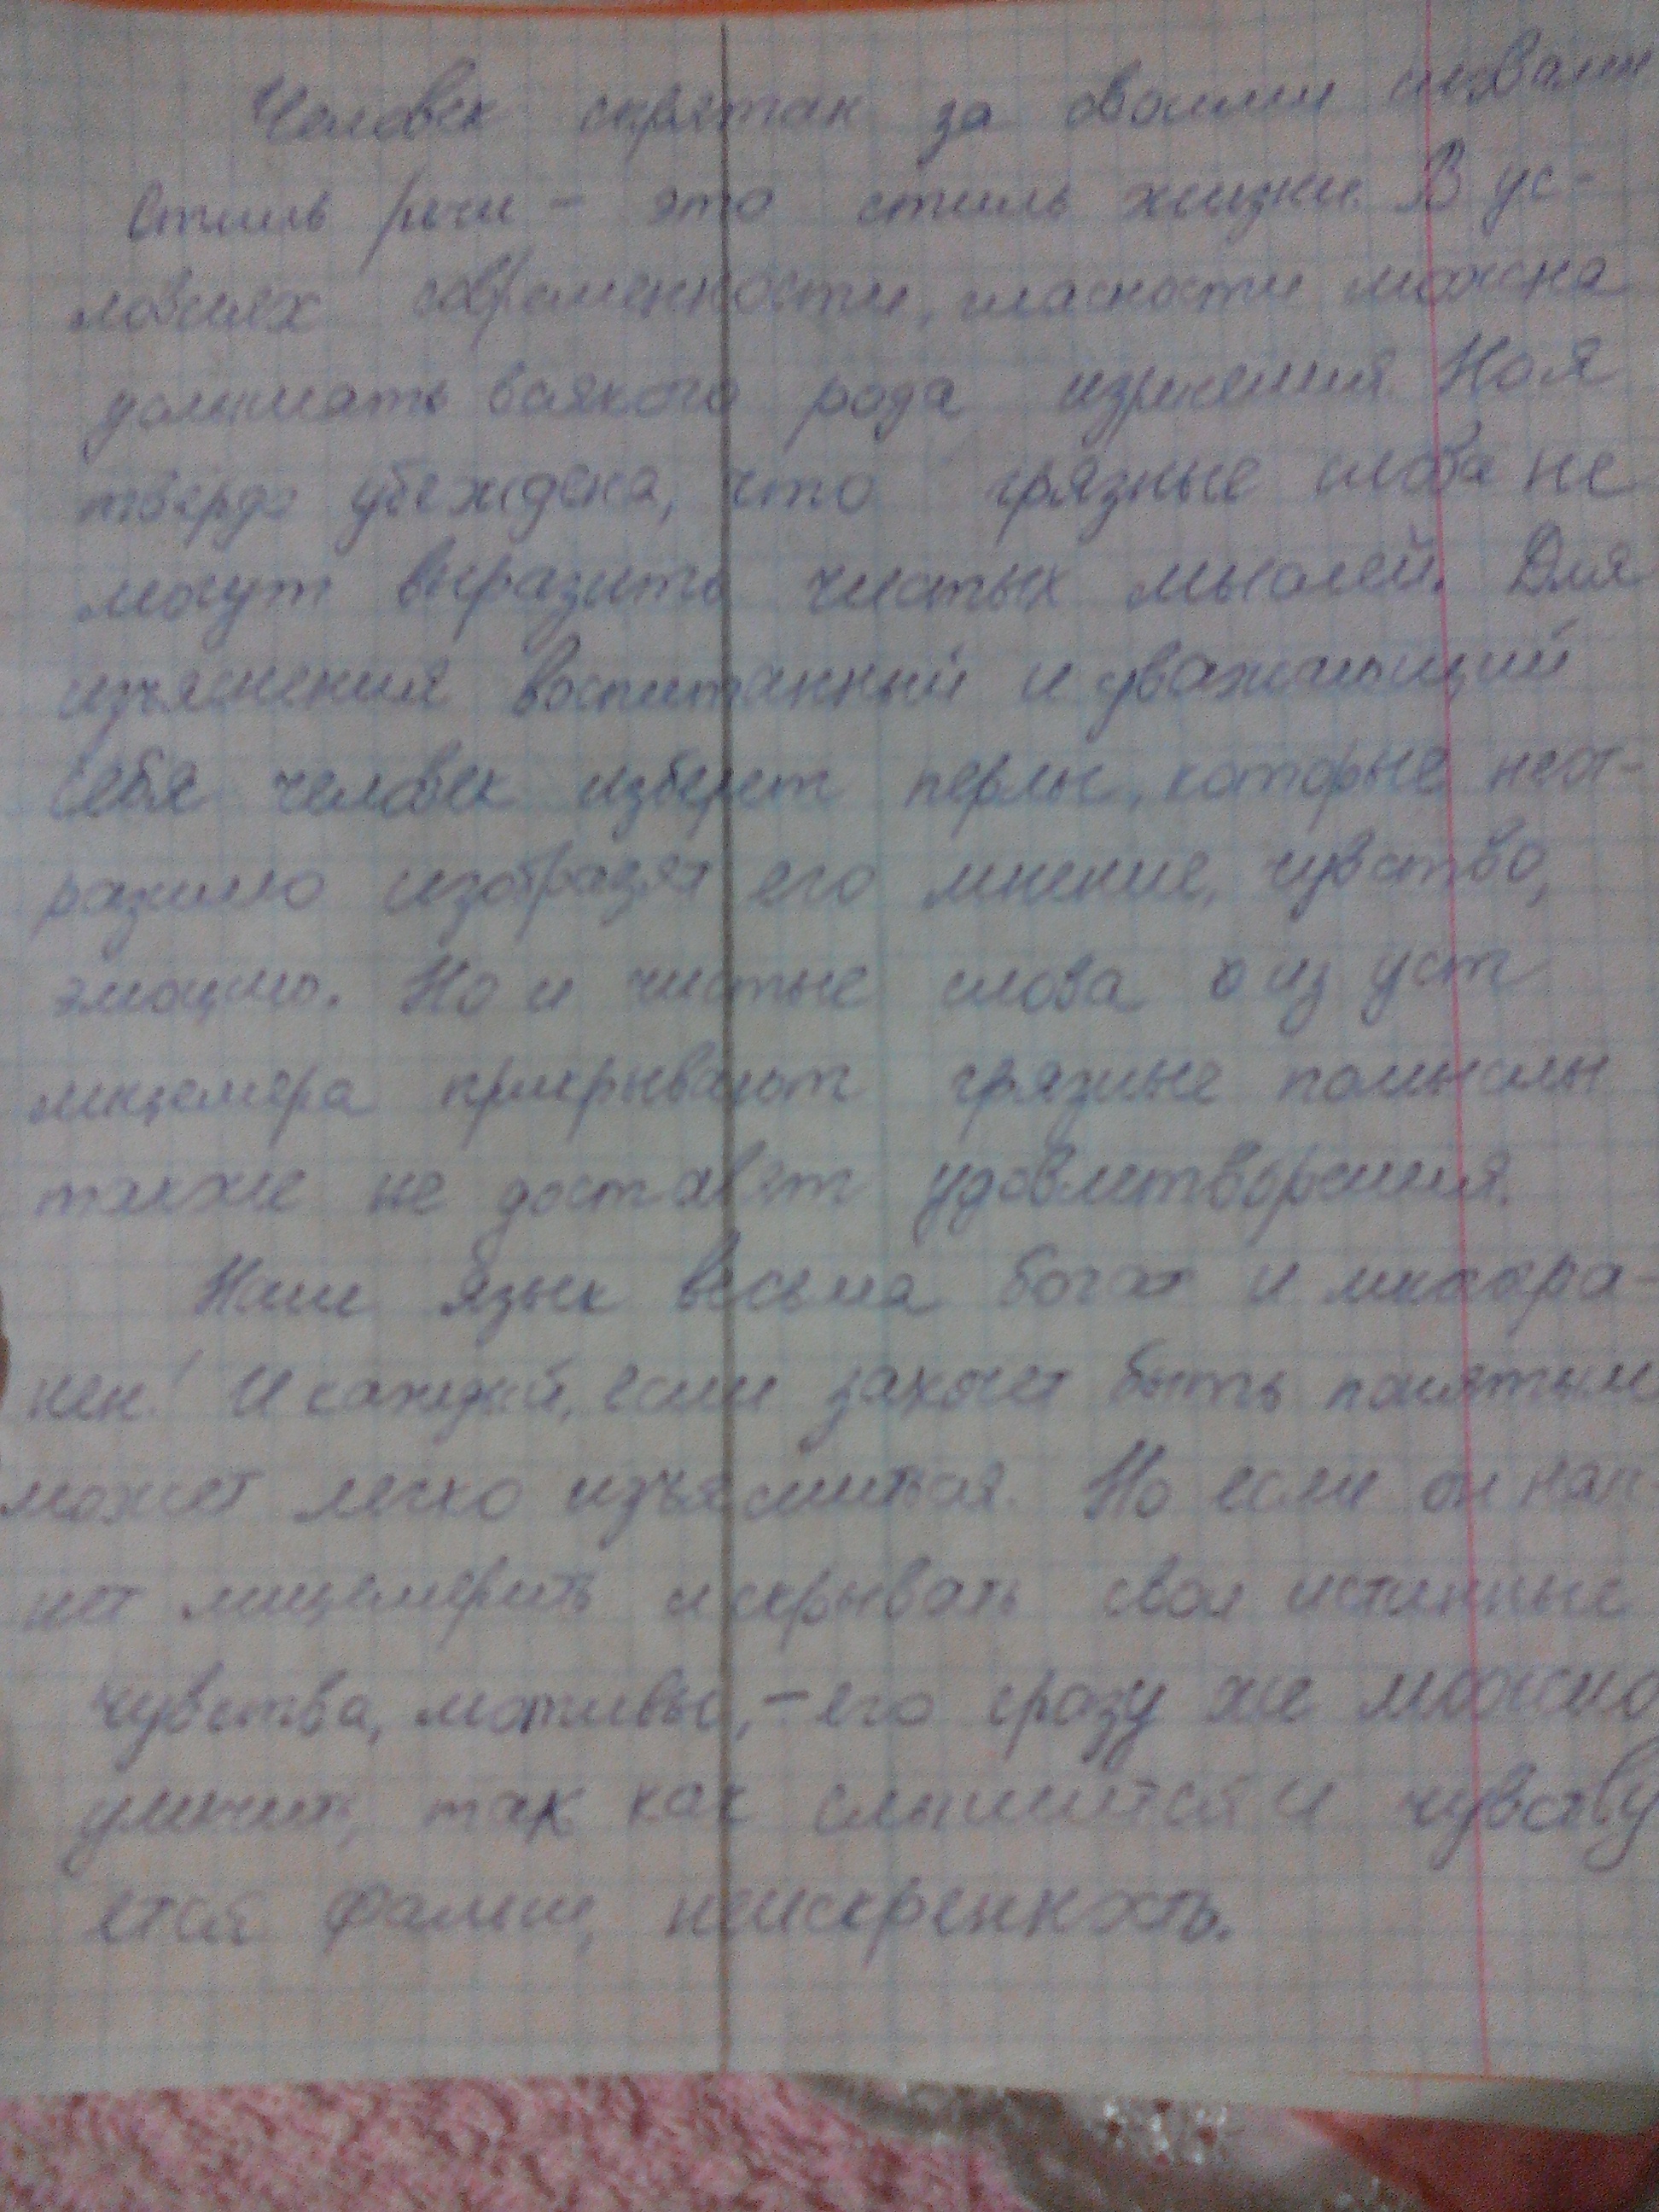 Человек спрятан за своими словами
Стиль речи – это стиль жизни. В ус-
ловиях современности, гласности можно
услышать всякого рода изречения. Но я
твердо убеждена, что грязные слова не
могут выразить чистых мыслей. Для
изъяснения воспитанный и уважающий
себя человек изберет перлы, которые неот-
разимо изобразят его мнение, чувство,
эмоцию. Но и чистые слова из уст
лицемера прикрывают грязные помыслы
также не доставят удовлетворения.
Наш язык весьма богат и многогра-
нен! И каждый, если захочет быть понятым
может легко изъясниться. Но если он нач-
нет лицемерить и скрывать свои истинные
чувства, мотивы, – его сразу же можно
уличить, так как слышится и чувству
ется фальш, неискренность.